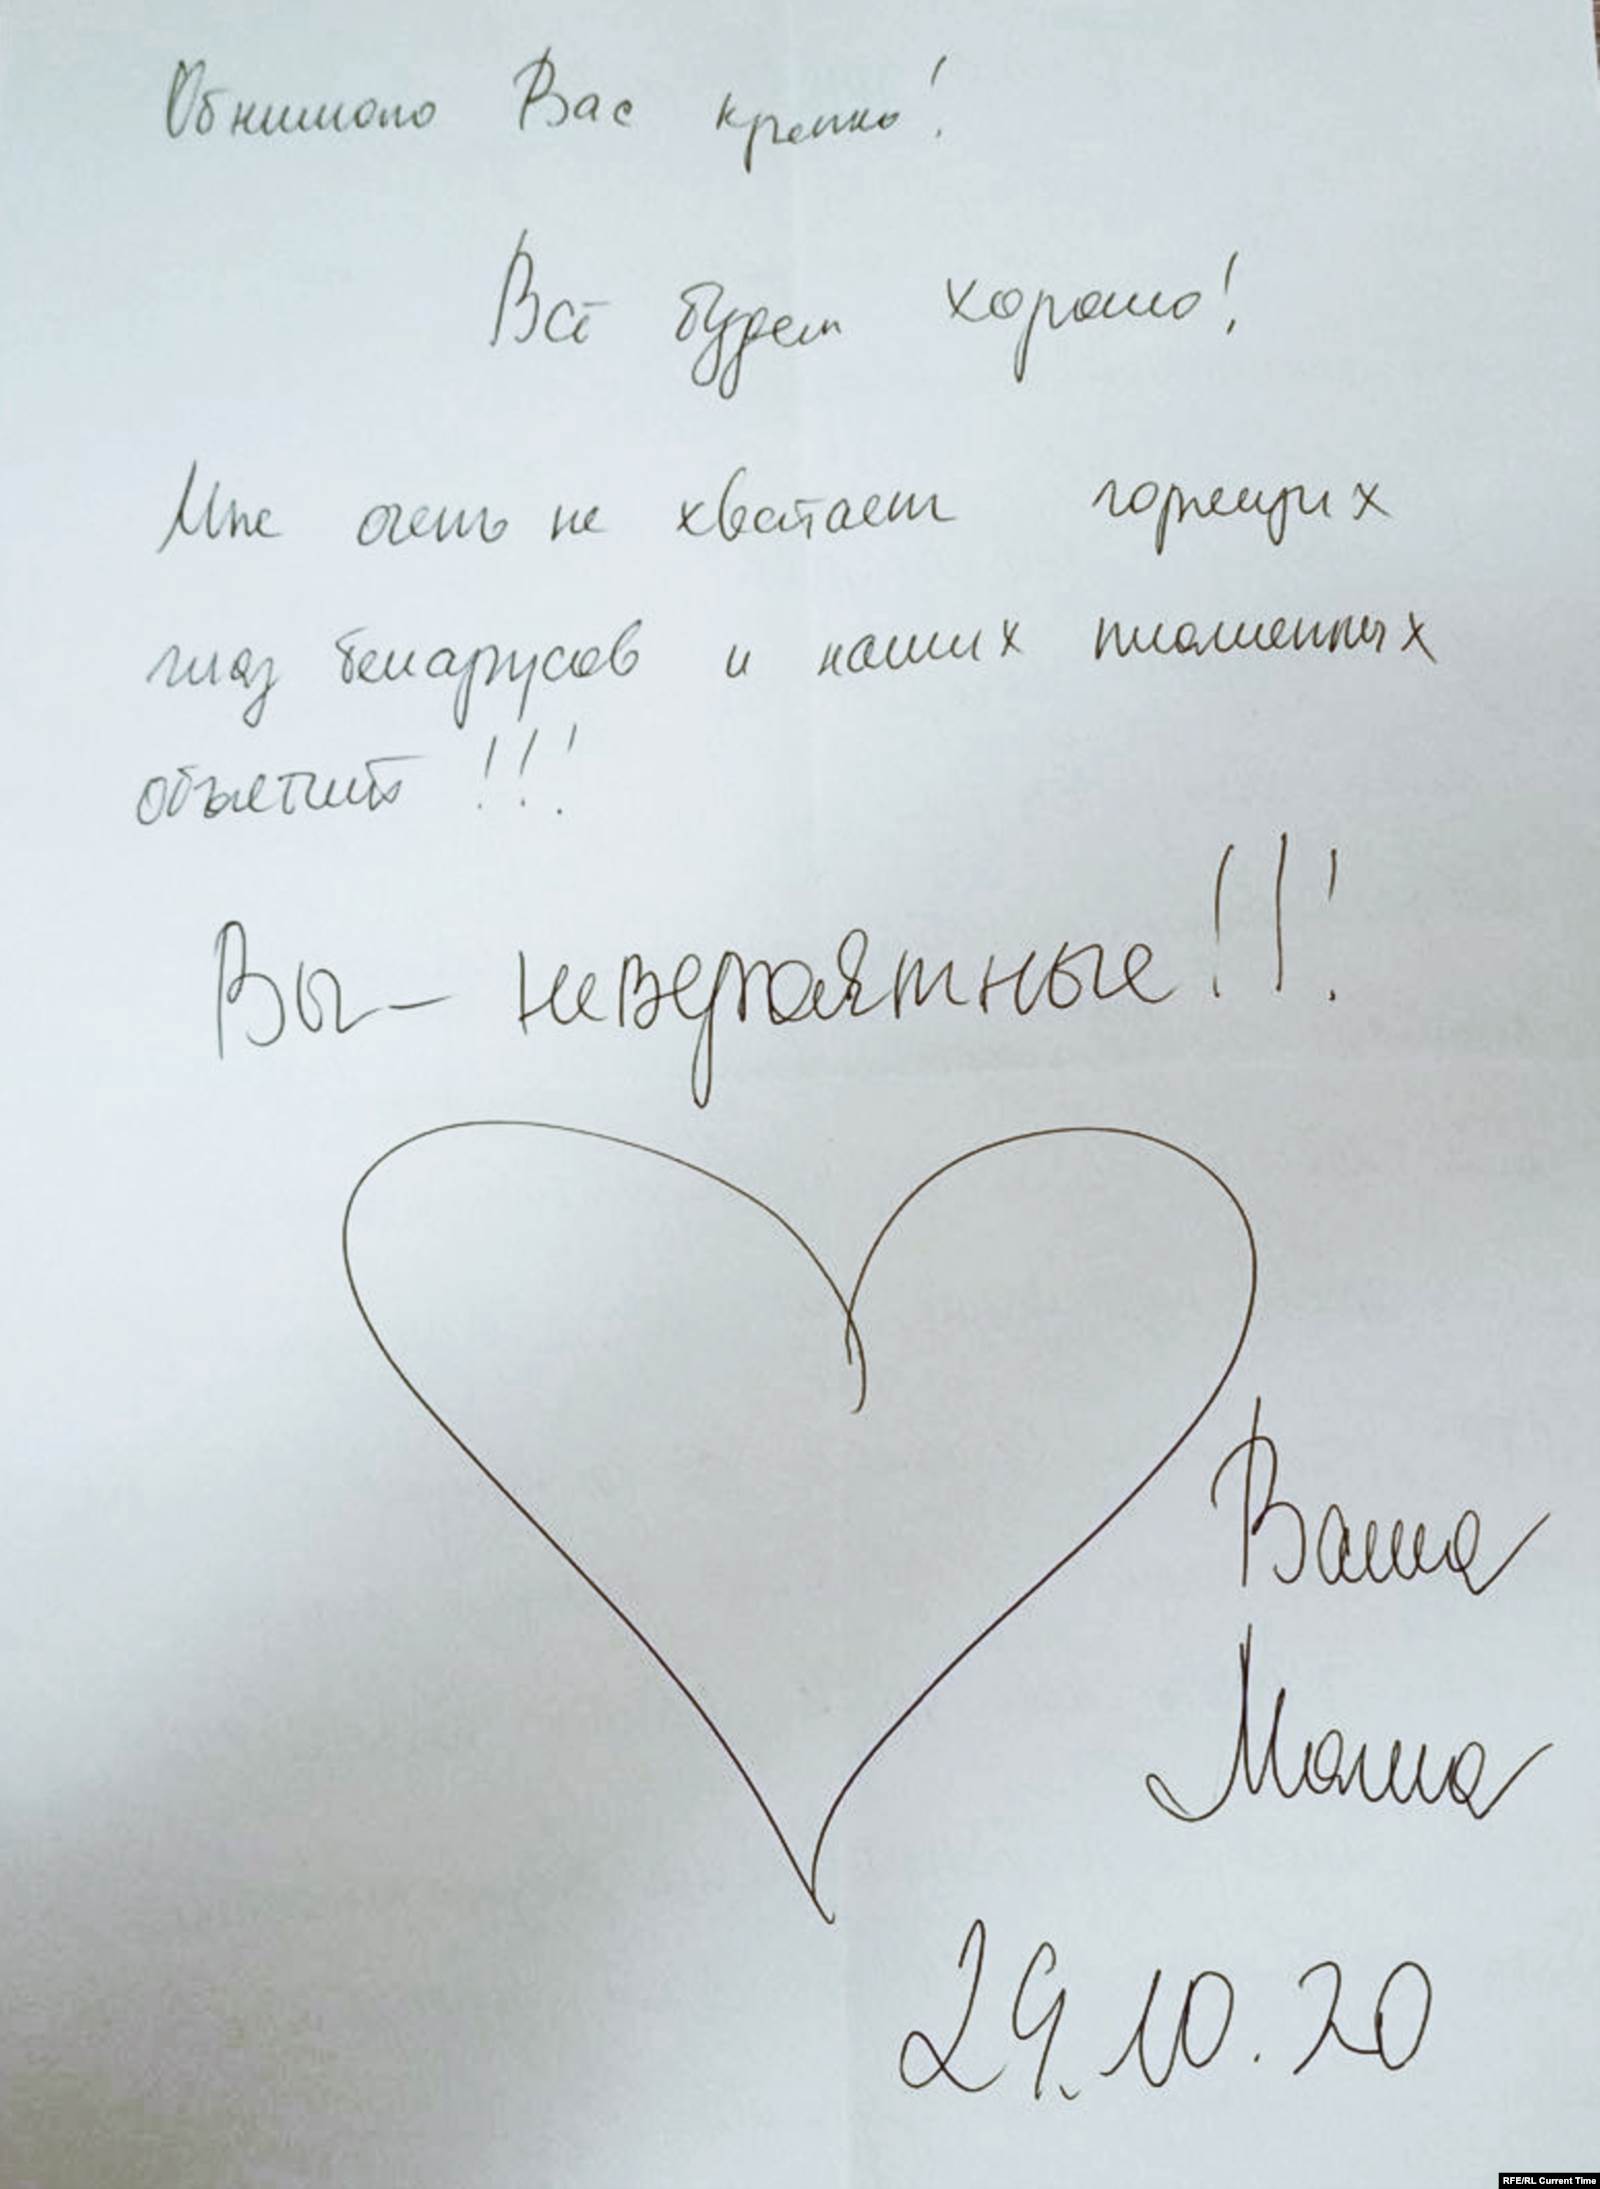 Обнимаю Вас крепко!
Всё будет хорошо!
Мне очень не хватает горящих
глаз беларусов и наших пламенных
объятий!!!
Вы - невероятные!!!
Ваша
Маша
29.10.20
RFE/RL Current Time